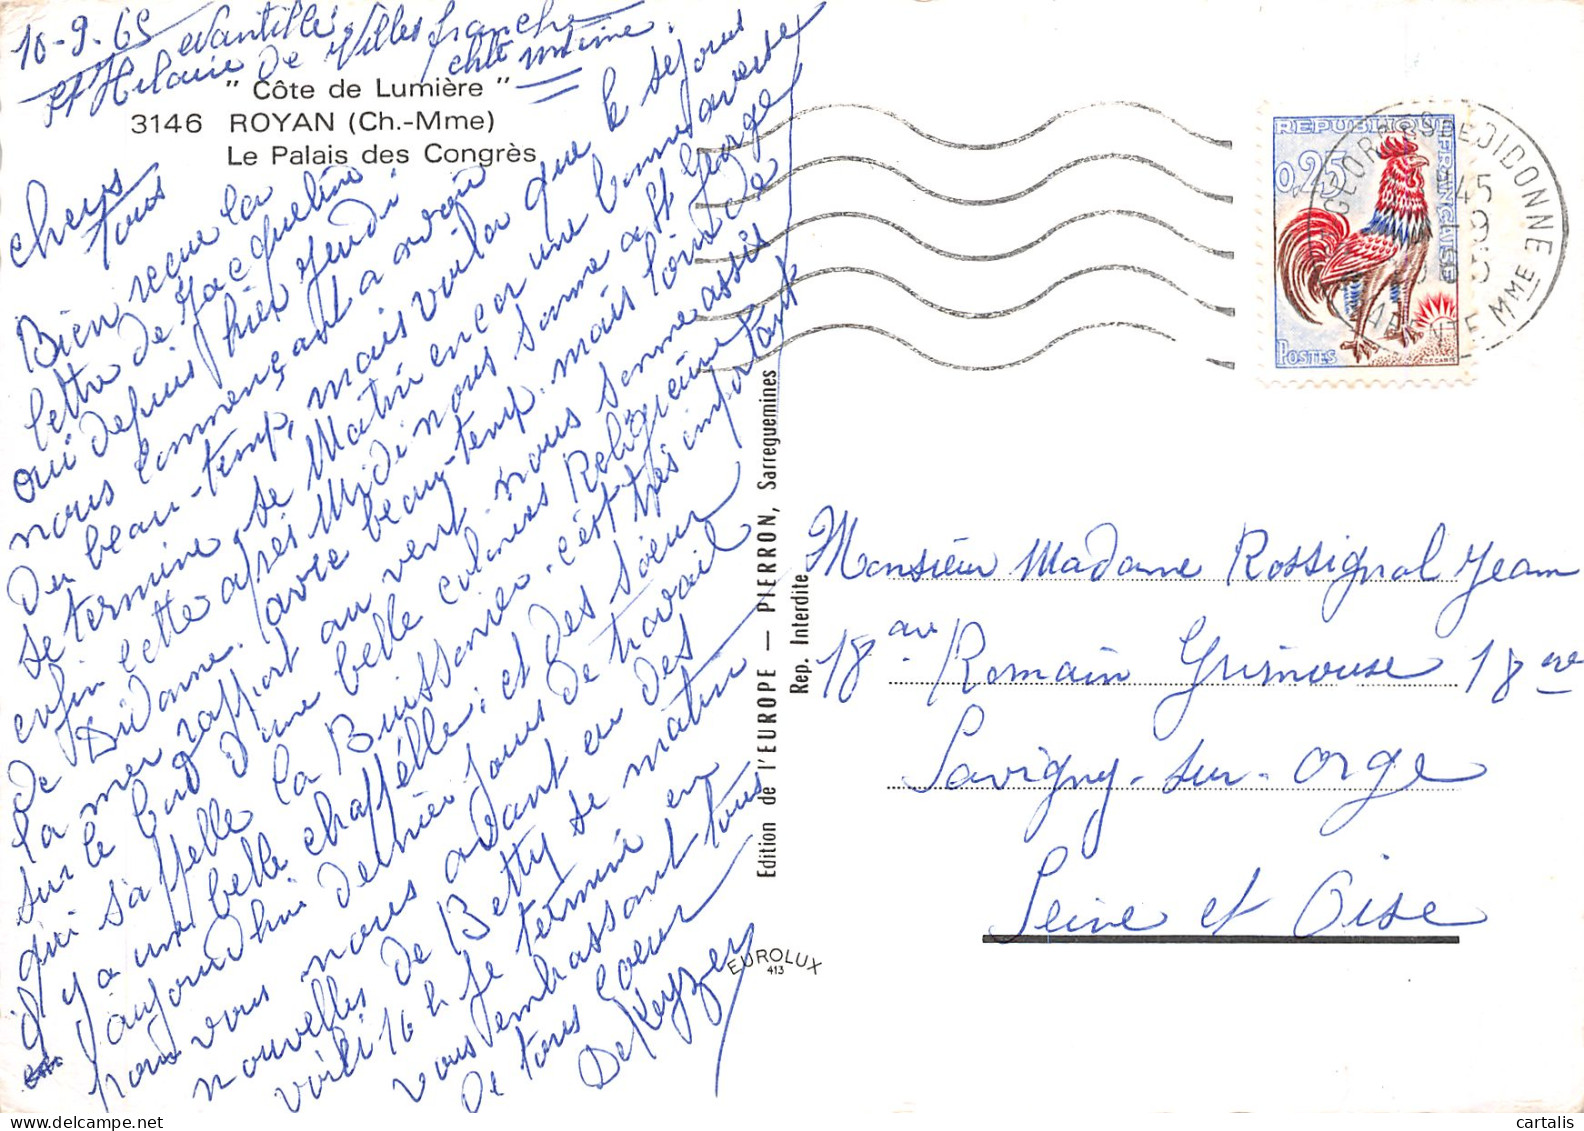 10-9.65 Nantillé
St Hilaire de Villefranche
chte mtime
" Côte de Lumière "
3146 ROYAN (Ch.-Mme)
Le Palais des Congrès
chers
tous
Bien recue la
lettre de Jacqueline
oui depuis hier Jeudi
nous commençant a avoir
du beau-temp, mais voila que le sejour
se termine, se Matin encor une bonne averse
enfin cette après Midi nous somme a St George
de Didonne. avec beau-temp. mais loin de
la mer rapport au vent, nous somme assis
sur le bord d'une belle colonies Religieuse
qui s'appelle la Buissonier. c'est très important
il y a une belle chappelle, et des Soeur
aujourdhui dernier jour de travail
pour vous nous avont eu des
nouvelles de Betty se matin
voici 16 h je termine en
vous embrassant tous
de tous Coeur
De Keyzer
Edition de l'EUROPE — PIERRON, Sarreguemines
Rep. Interdite
EUROLUX
413
REPUBLIQUE FRANÇAISE
0,25
POSTES
GEORGES DE DIDONNE
45
9
MME
Monsieur Madame Rossignol Jean
18 ave Romain Grimouse 18 ave
Savigny-sur-Orge
Seine et Oise
cartalis